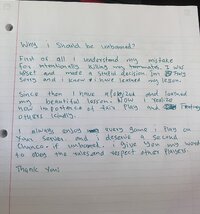 Why I should be unbanned?
First of all I understand my mistake
for intentionally killing my teammates. I was
upset and made a stupid decision. Im very
Sorry and I know I have learned my lesson.
Since then I have apologized and learned
my beautiful lesson. Now I realize
how importance of fair play and treating
others kindly.
I always enjoy every game i play on
your servers and deserve a second
chance. if unbanned, i give you my word
to obey the rules and respect other players.
Thank you!